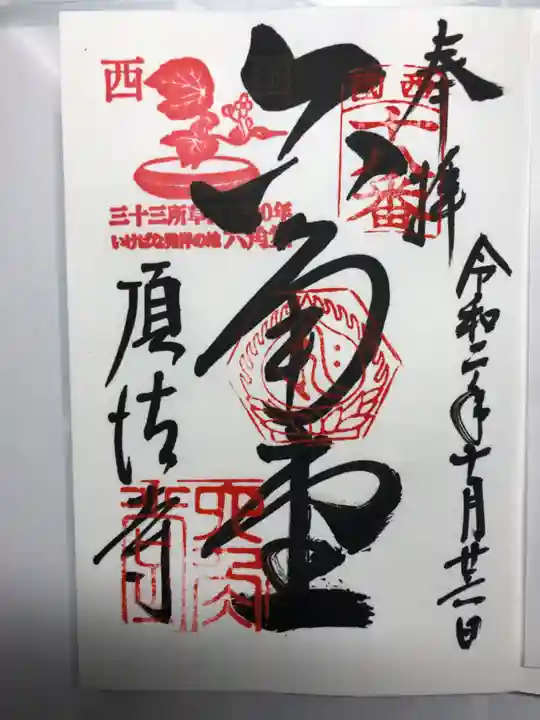 奉拝
令和二年十月廿二日
西国
十八番
六角堂
西
三十三所草
0年
いけばな発祥の地 六角堂
頂法寺